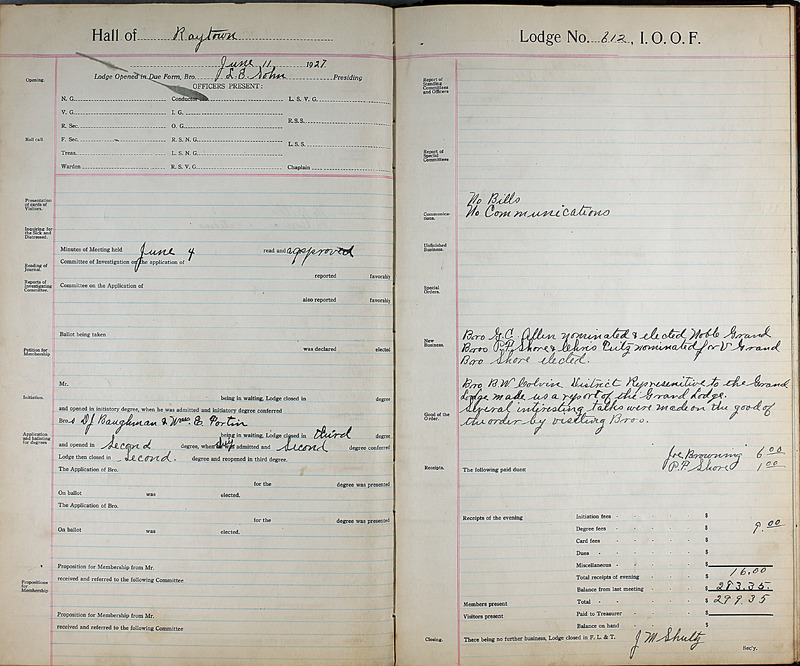 Hall of Raytown
June 11, 1927
Lodge Opened in Due Form, Bro. L. E. John Presiding
OFFICERS PRESENT:
Opening.
N. G. Conductor L. S. V. G.
V. G. I. G.
R. S. S.
R. Sec. O. G.
Roll call.
F. Sec. R. S. N. G.
L. S. S.
Treas. L. S. N. G.
Warden R. S. V. G. Chaplain
Presentation of cards of Visitors.
Inquiring for the Sick and Distressed.
Minutes of Meeting held June 4 read and approved
Reading of Journal.
Committee of Investigation on the application of
reported favorably
Reports of Investigating Committee.
Committee on the Application of
also reported favorably
Ballot being taken
was declared elected
Petition for Membership
Mr.
Initiation.
being in waiting, Lodge closed in degree
and opened in initiatory degree, when he was admitted and initiatory degree conferred
Bro.s D J Baughman & Wm E. Portin
Application and balloting for degrees
being in waiting, Lodge closed in third degree
and opened in Second degree, when they admitted and Second degree conferred
Lodge then closed in Second. degree and reopened in third degree.
The Application of Bro.
for the degree was presented
On ballot was elected.
The Application of Bro.
for the degree was presented
On ballot was elected.
Proposition for Membership from Mr.
received and referred to the following Committee
Propositions for Membership
Proposition for Membership from Mr.
received and referred to the following Committee
Lodge No. 612, I. O. O. F.
Report of Standing Committees and Officers
Report of Special Committees
No Bills
Communications.
No Communications
Unfinished Business.
Special Orders.
New Business.
Bro G. C. Allen nominated & elected Noble Grand
Bros P.P. Shore & Chris Lutz nominated for V Grand
Bro Shore elected.
Bro B.W. Colvin District Represenitive to the Grand
Lodge made us a report of the Grand Lodge.
Good of the Order.
Several interesting talks were made on the good of
the order by visitting Bros.
Receipts.
Joe Browning 6 00
The following paid dues: P.P. Shore 1 00
Receipts of the evening
Initiation fees - $
Degree fees - $ 9.00
Card fees - $
Dues - $
Miscellaneous - $
Total receipts of evening $ 16.00
Balance from last meeting $ 283.35
Members present
Total - $ 299.35
Visitors present
Paid to Treasurer - $
Balance on hand - $
Closing.
There being no further business, Lodge closed in F. L. & T. J M Shultz
Sec'y.